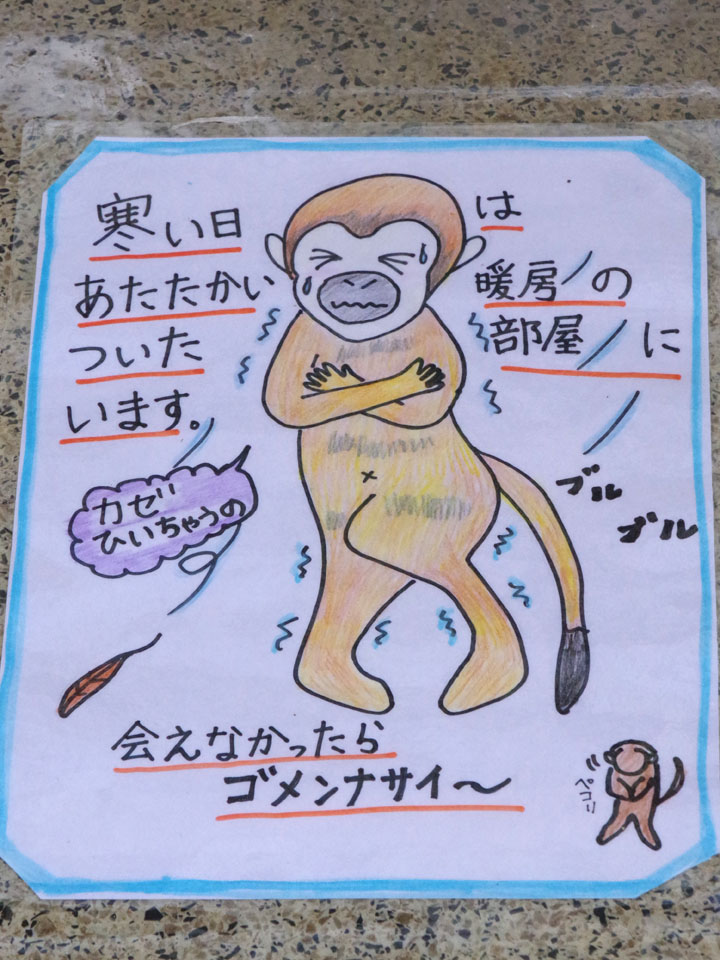 寒い日は
あたたかい暖房の
部屋に
ついた
います。
カゼ
ひいちゃうの
ブル
ブル
会えなかったら
ゴメンナサイ〜
ペコリ